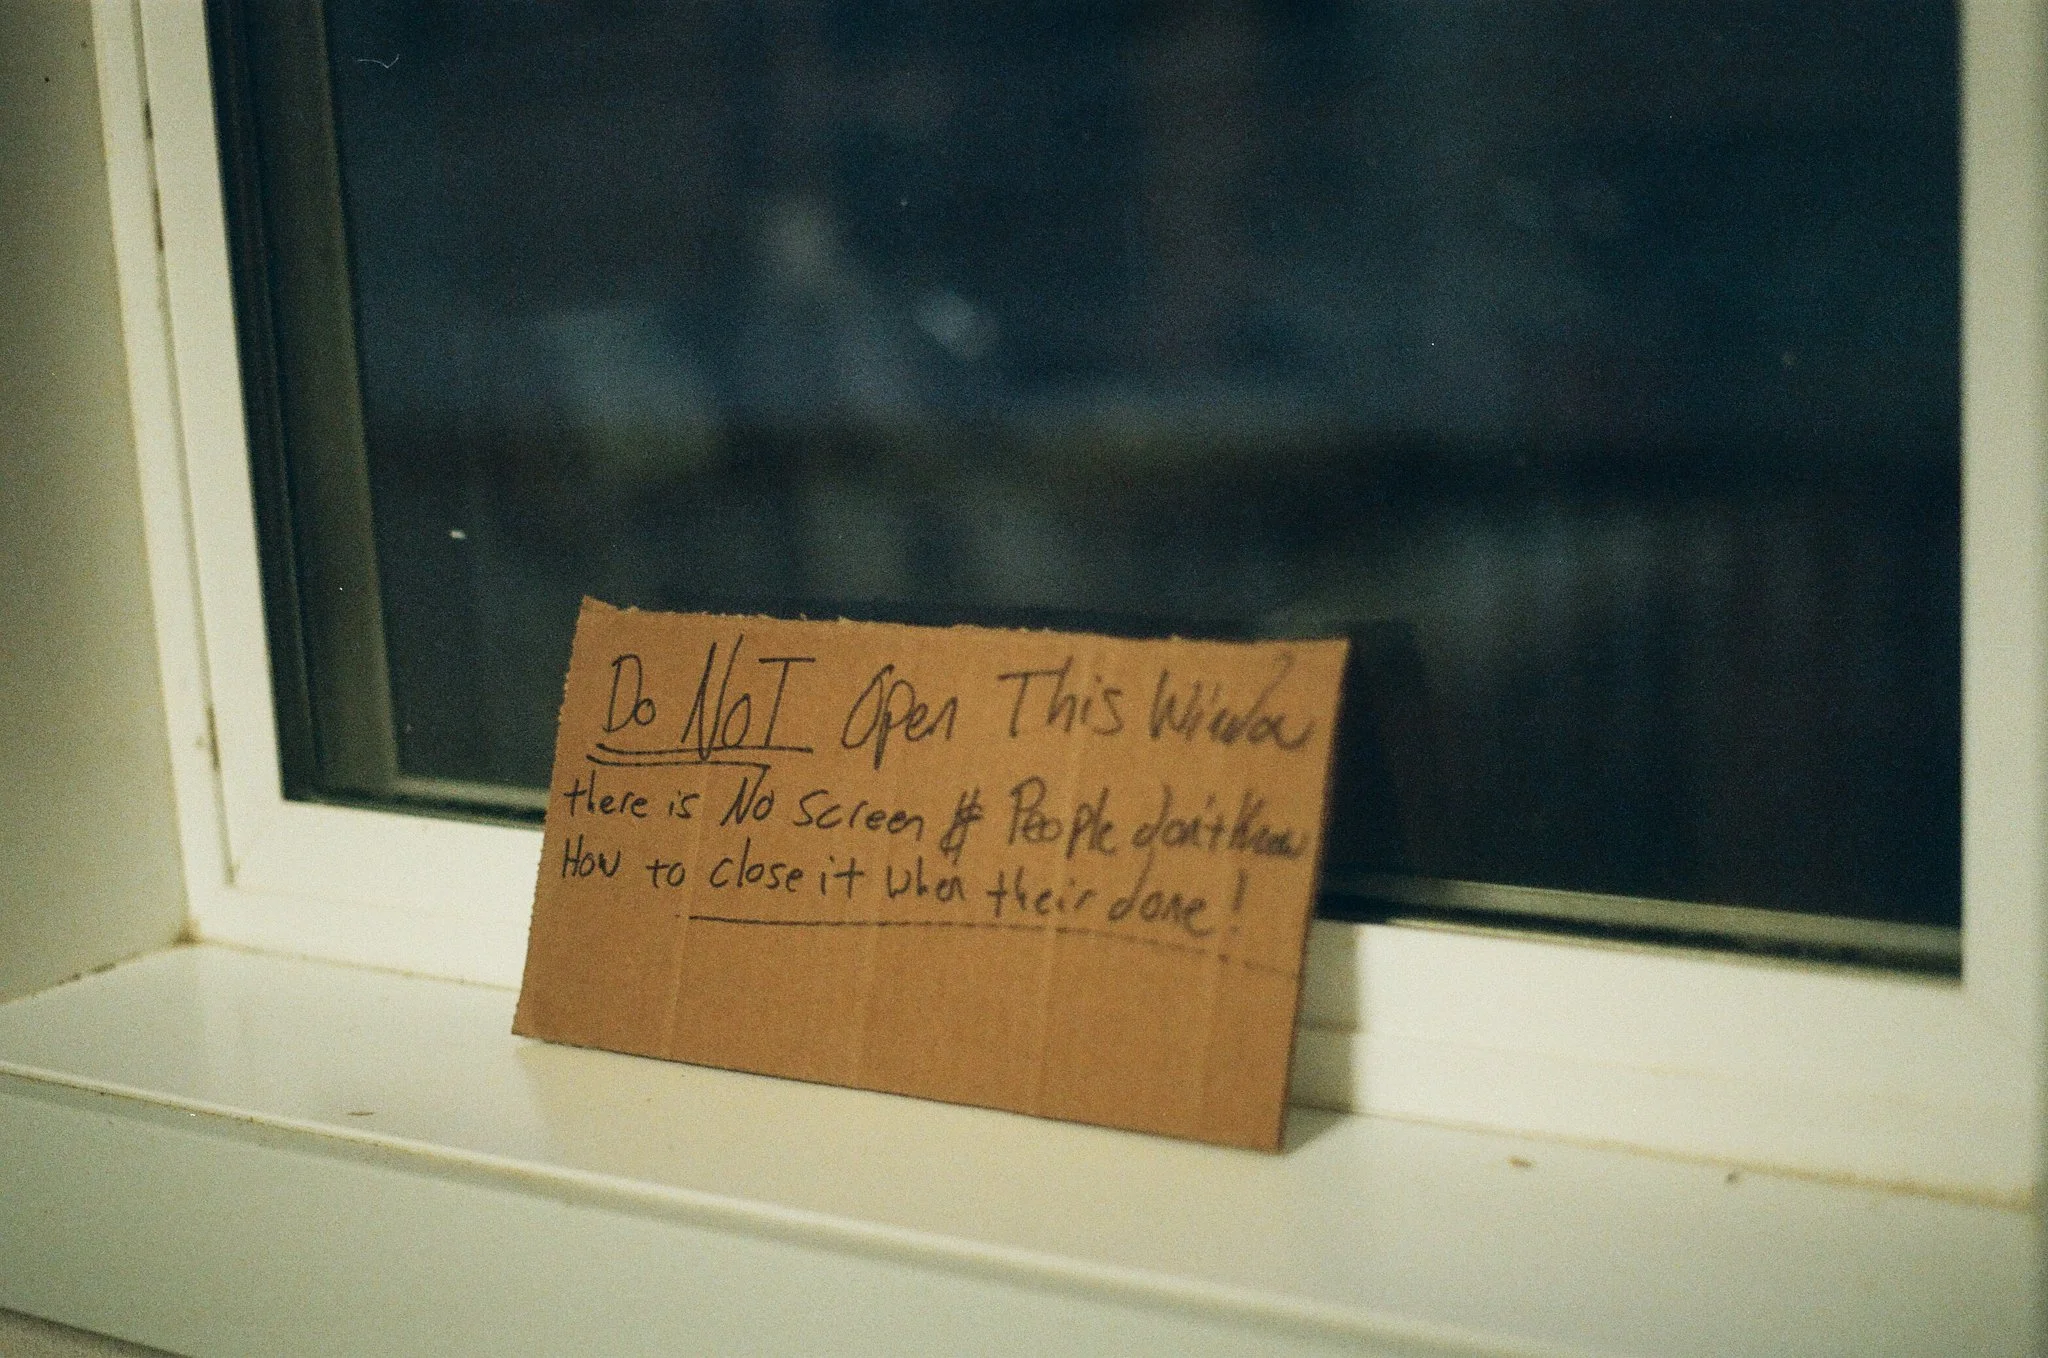 Do NOT Open This Window
there is No Screen & People don't Know
How to close it when their done!